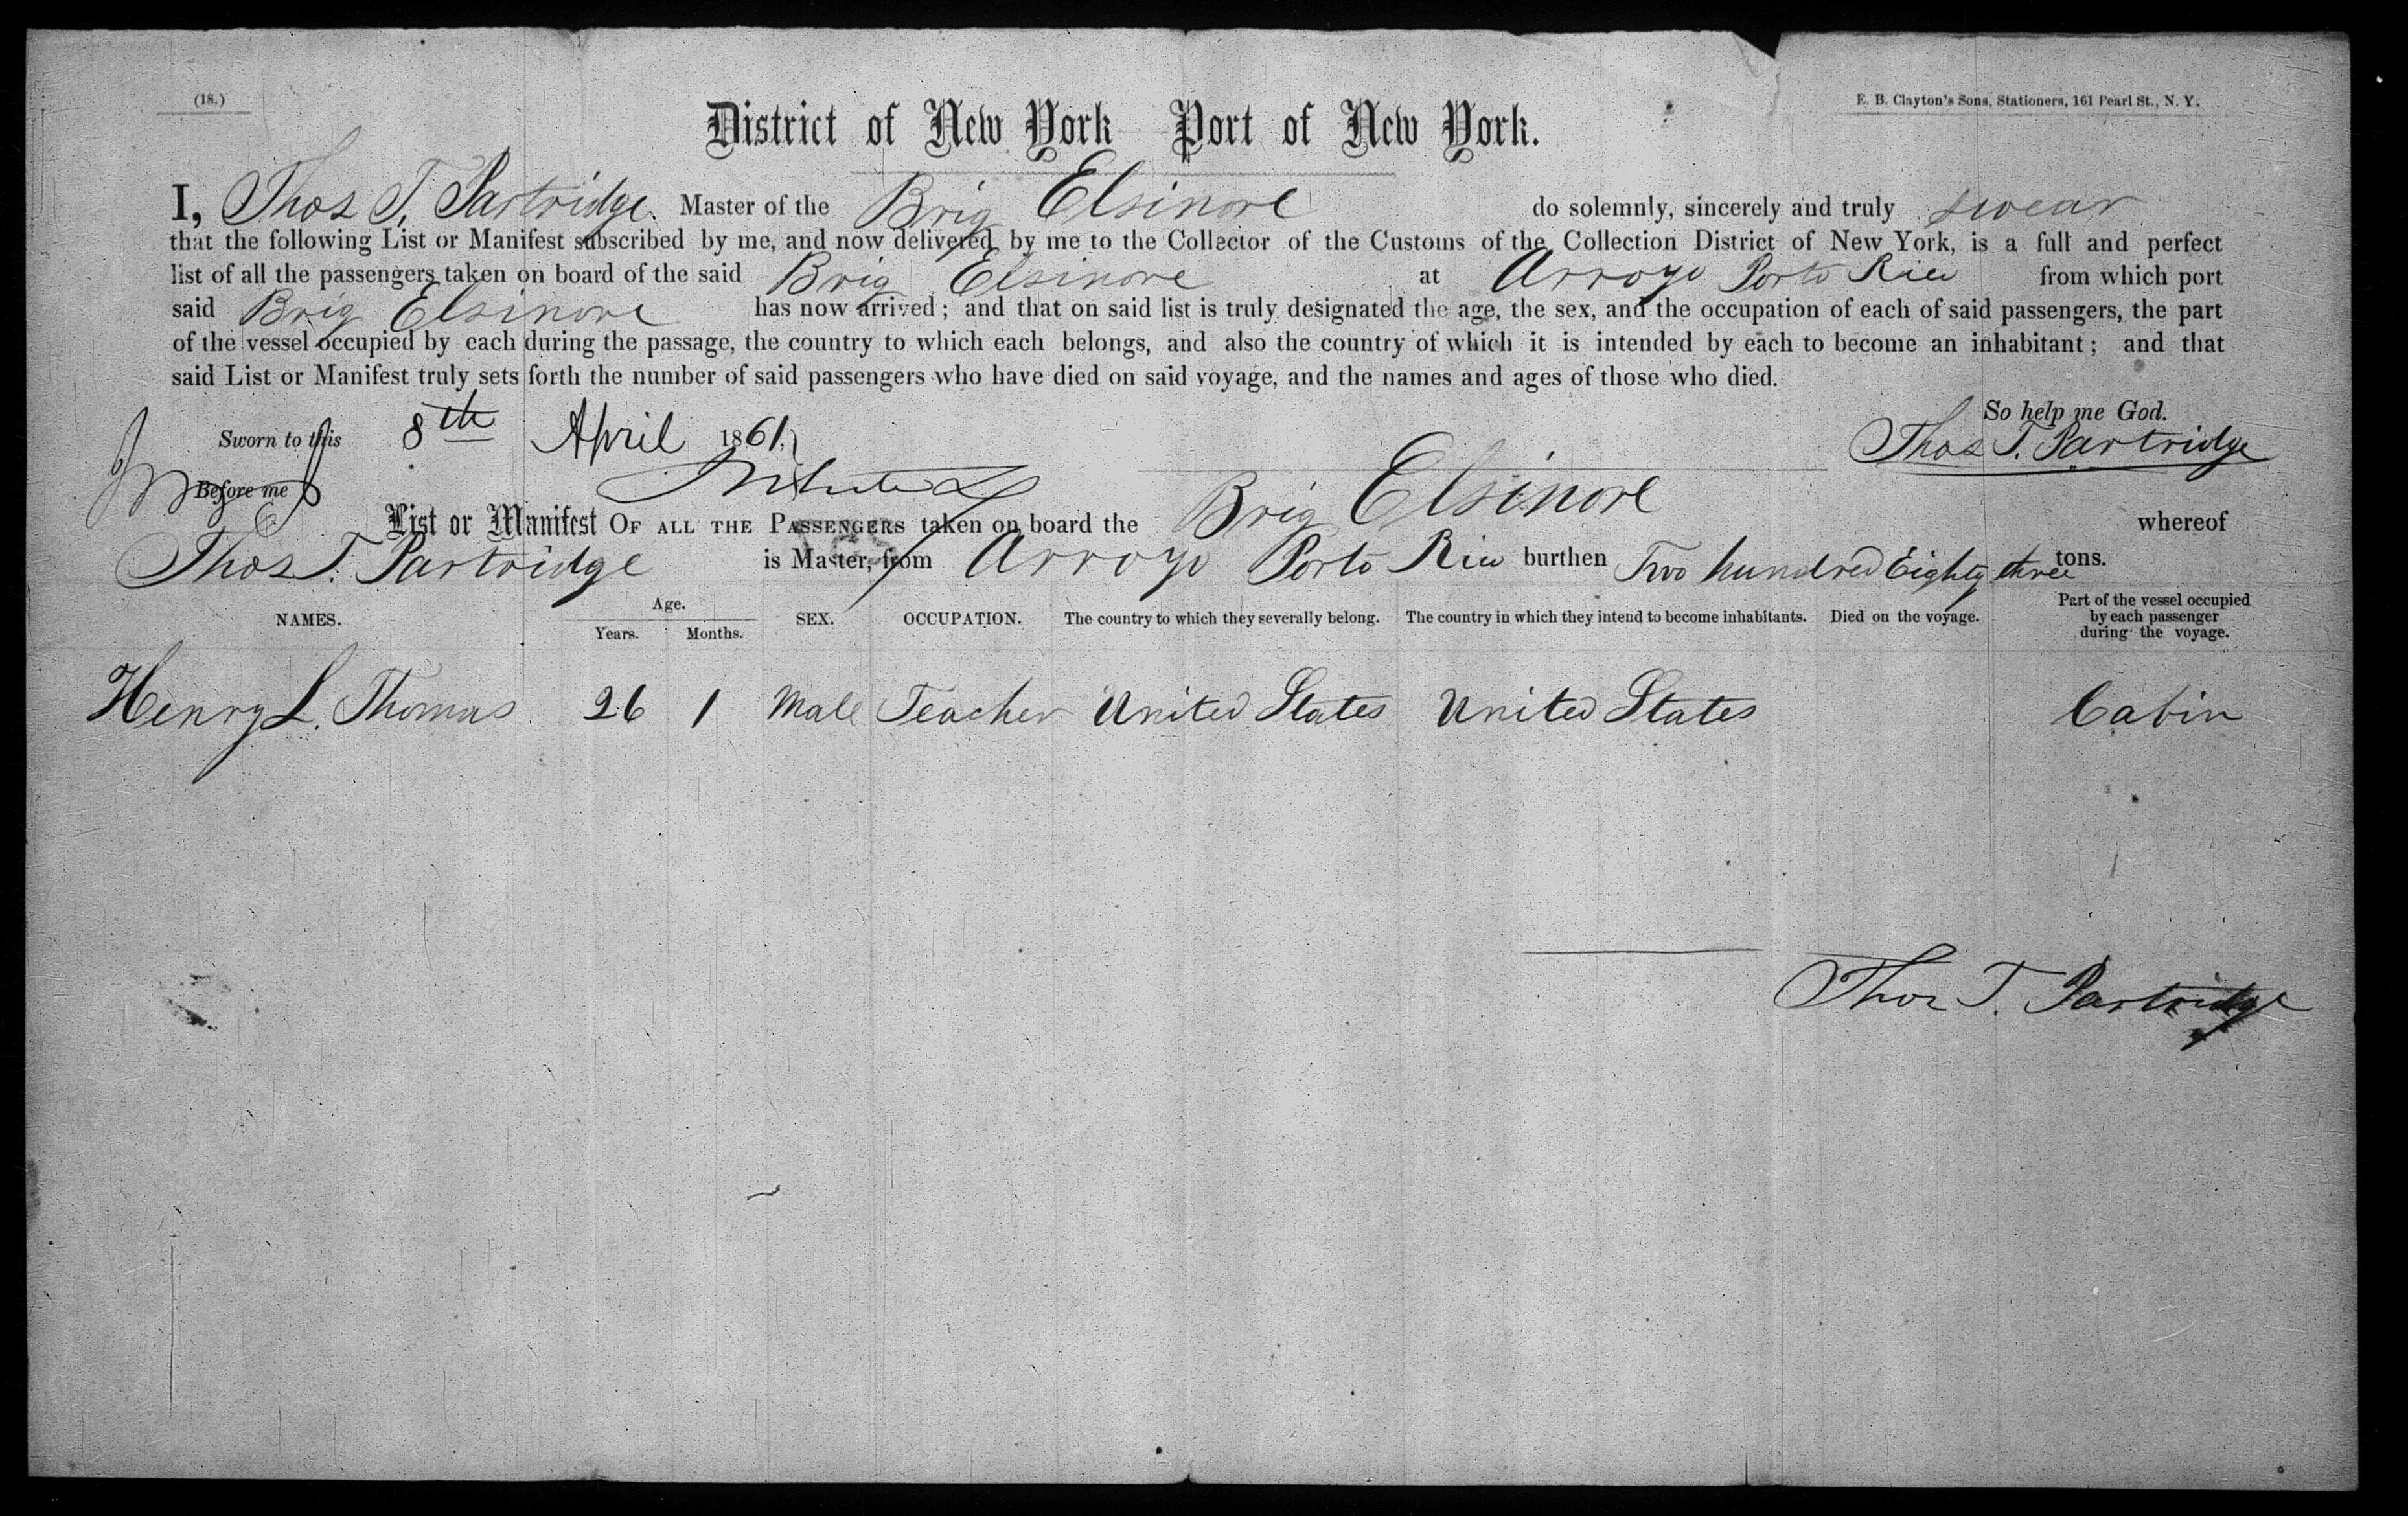 (18.)
E. B. Clayton's Sons, Stationers, 161 Pearl St., N. Y.
District of New York Port of New York.
I, Thos T. Partridge. Master of the Brig Elsinore do solemnly, sincerely and truly swear
that the following List or Manifest subscribed by me, and now delivered by me to the Collector of the Customs of the Collection District of New York, is a full and perfect
list of all the passengers taken on board of the said Brig Elsinore at Arroyo Porto Rico from which port
said Brig Elsinore has now arrived; and that on said list is truly designated the age, the sex, and the occupation of each of said passengers, the part
of the vessel occupied by each during the passage, the country to which each belongs, and also the country of which it is intended by each to become an inhabitant; and that
said List or Manifest truly sets forth the number of said passengers who have died on said voyage, and the names and ages of those who died.
So help me God.
Sworn to this 8th April 1861.
Thos T. Partridge
Before me
List or Manifest OF ALL THE PASSENGERS taken on board the Brig Elsinore whereof
Thos T. Partridge is Master, from Arroyo Porto Rico burthen Two hundred Eighty three tons.
NAMES. Age. Years. Months. SEX. OCCUPATION. The country to which they severally belong. The country in which they intend to become inhabitants. Died on the voyage. Part of the vessel occupied by each passenger during the voyage.
Henry L. Thomas 26 1 Male Teacher United States United States Cabin
Thos T. Partridge